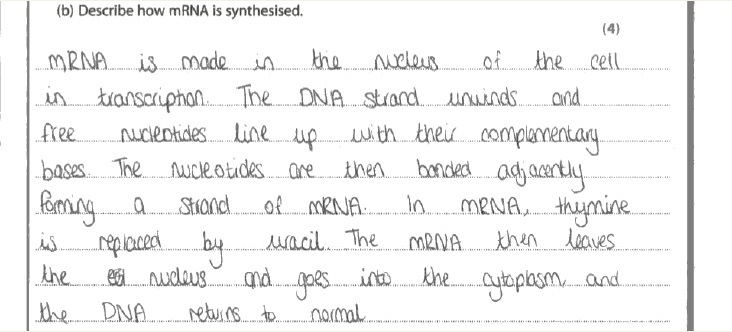 (b) Describe how mRNA is synthesised.
(4)
mRNA is made in the nucleus of the cell
in transcription. The DNA strand unwinds and
free nucleotides line up with their complementary
bases. The nucleotides are then bonded adjacently
forming a strand of mRNA. In mRNA, thymine
is replaced by uracil. The mRNA then leaves
the nucleus and goes into the cytoplasm, and
the DNA returns to normal